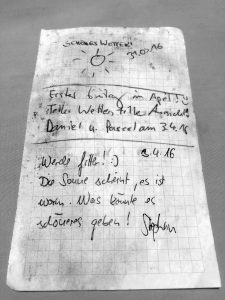 SCHÖNES WETTER! 31.03.16
Erster Eintrag im April!
Tolles Wetter, tolle Aussicht!
Daniel u. Pascal am 3.4.16
Werde fitter! :) 3.4.16
Die Sonne scheint, es ist
warm. Was könnte es
schöneres geben! Stephan